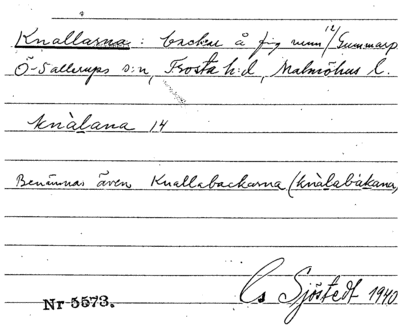 Knallarna: backar å fig nmn 12/Gummarp
Ö-Sallerups s:n, Frosta h:d, Malmöhus l.
knàlana 14
Benämnas även Knallabackarna (knàlabakana)
Nr 5573.
Cs Sjöstedt 1940